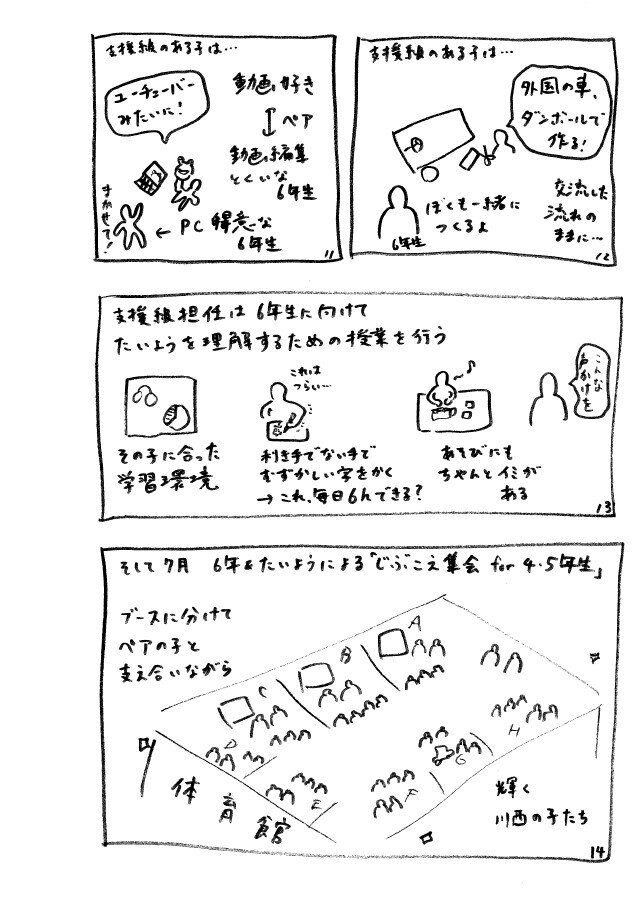 支援級のある子は…
ユーチューバー
みたいに!
動画好き
ペア
動画編集
とくいな
6年生
まかせて!
← PC得意な
6年生
11
支援級のある子は…
外国の車、
ダンボールで
作る!
6年生
ぼくも一緒に
つくるよ
交流した
流れの
ままに…
12
支援級担任は6年生に向けて
たいようを理解するための授業を行う
その子に合った
学習環境
これは
つらい…
利き手でない手で
むずかしい字をかく
→これ、毎日6hできる?
あそびにも
ちゃんとイミが
ある
こんな
声かけを
13
そして7月 6年&たいようによる「じぶこえ集会 for 4・5年生」
ブースに分けて
ペアの子と
支え合いながら
A
B
C
D
E
F
G
H
体育館
輝く
川西の子たち
14